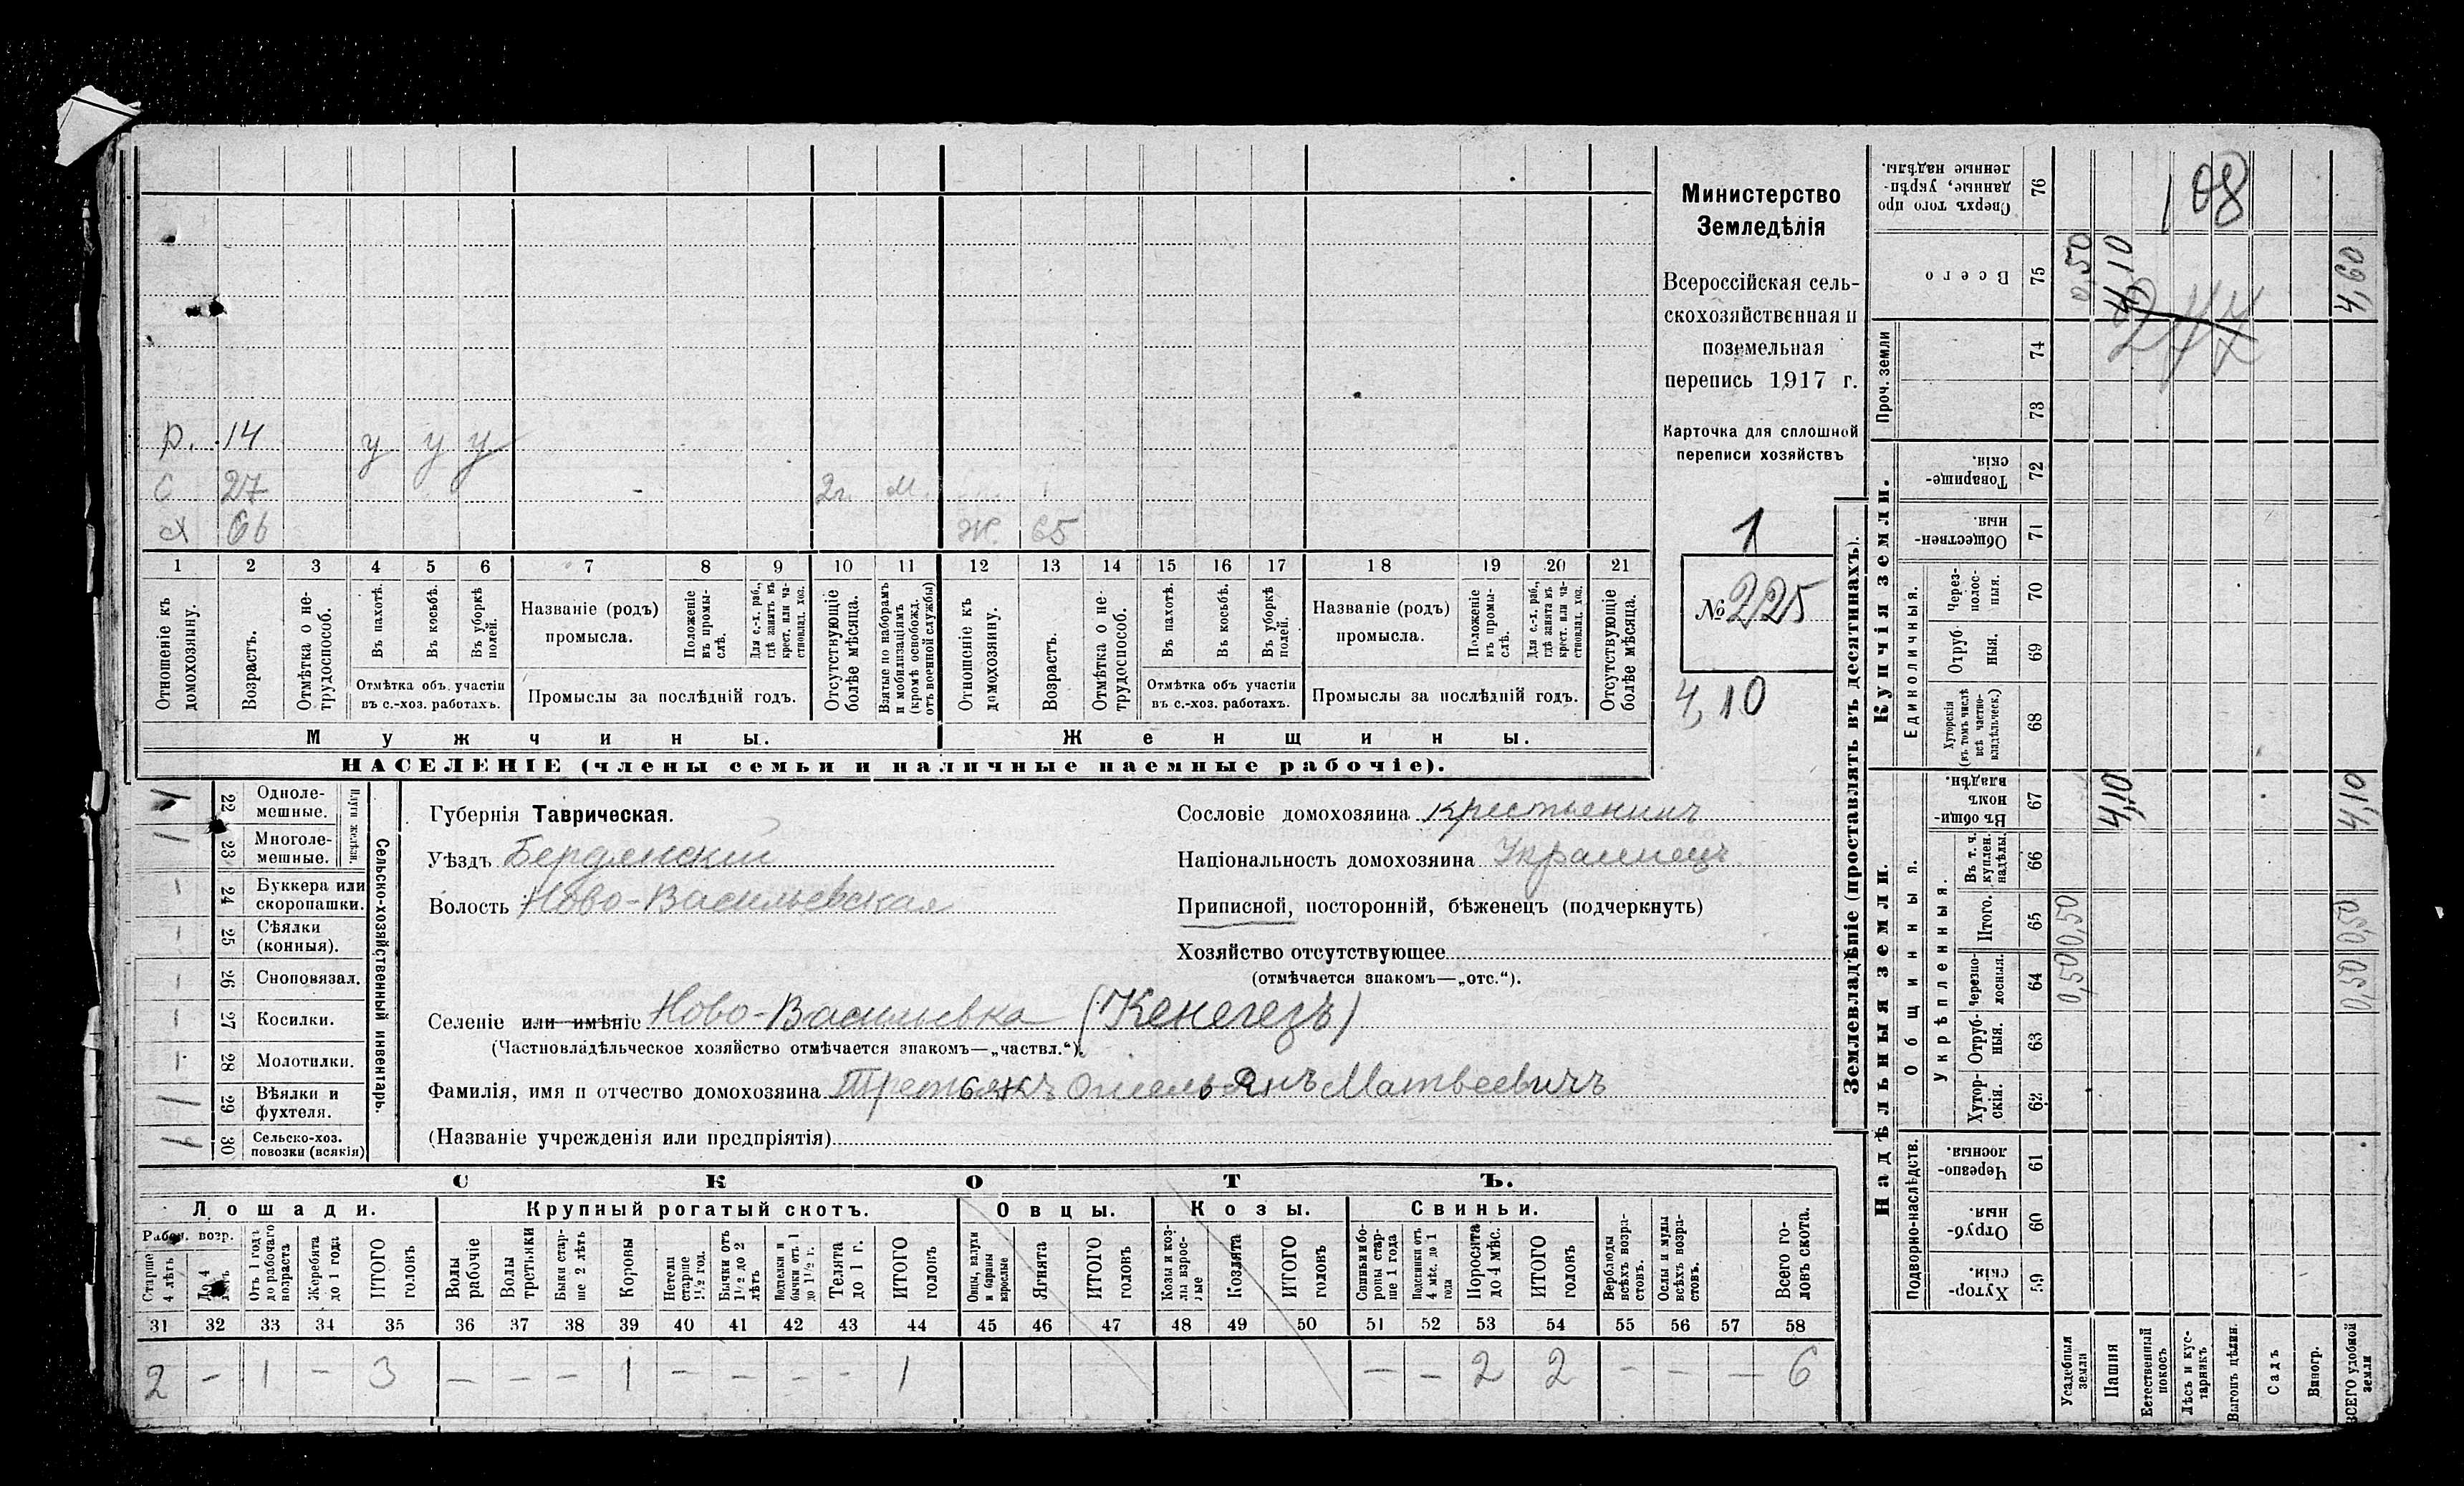 Министерство
Земледѣлія
Всероссійская сель-
скохозяйственная и
поземельная
перепись 1917 г.
Карточка для сплошной
переписи хозяйствъ
1
№ 225
4,10
р. 14 у у у
с 27 - 2г. м.
х 66 Ж. 65
1 2 3 4 5 6 7 8 9 10 11 12 13 14 15 16 17 18 19 20 21
Отношеніе къ домохозяину.
Возрастъ.
Отмѣтка о не-трудоспособ.
Въ пахотѣ.
Въ косьбѣ.
Въ уборкѣ полей.
Отмѣтка объ участіи
въ с.-хоз. работахъ.
Названіе (родъ)
промысла.
Положеніе въ промы-слѣ.
Для с.-х. раб., гдѣ занятъ въ крест. или ча-стновлад. хоз.
Промыслы за послѣдній годъ.
Отсутствующіе болѣе мѣсяца.
Взятые по наборамъ и мобилизаціямъ (кромѣ освобожд. отъ военной службы)
Отношеніе къ домохозяину.
Возрастъ.
Отмѣтка о не-трудоспособ.
Въ пахотѣ.
Въ косьбѣ.
Въ уборкѣ полей.
Отмѣтка объ участіи
въ с.-хоз. работахъ.
Названіе (родъ)
промысла.
Положеніе въ промы-слѣ.
Для с.-х. раб., гдѣ занята въ крест. или ча-стновлад. хоз.
Промыслы за послѣдній годъ.
Отсутствующіе болѣе мѣсяца.
Мужчины.
Женщины.
НАСЕЛЕНІЕ (члены семьи и наличные наемные рабочіе).
22 Однолемешные.
23 Многолемешные. 1
Плуги желѣзн.
24 Буккера или скоропашки. -
25 Сѣялки (конныя). -
26 Сноповязал. -
27 Косилки. -
28 Молотилки. -
29 Вѣялки и фухтеля. 1
30 Сельско-хоз. повозки (всякія)
Сельско-хозяйственный инвентарь.
Губернія Таврическая.
Уѣздъ Бердянскій
Волость Ново-Васильевская
Сословіе домохозяина крестьянинъ
Національность домохозяина Украинецъ
Приписной, посторонній, бѣженецъ (подчеркнуть)
Хозяйство отсутствующее
(отмѣчается знакомъ—„отс.“).
Селеніе или имѣніе Ново-Васильевка (Кенегезъ)
(Частновладѣльческое хозяйство отмѣчается знакомъ—„частвл.“).
Фамилія, имя и отчество домохозяина Третьякъ Омельянъ Матвеевичъ
(Названіе учрежденія или предпріятія)
СКОТЪ.
Лошади. Крупный рогатый скотъ. Овцы. Козы. Свиньи.
Рабоч. возр.
Старше 4 лѣтъ
До 4 лѣтъ
Отъ 1 года до рабочаго возраста
Жеребята до 1 года
ИТОГО головъ
Волы рабочіе
Волы третьяки
Быки старше 2 лѣтъ
Коровы
Нетели старше 1½ год.
Бычки отъ 1½ до 2 лѣтъ
Подтелки и бычки отъ 1 до 1½ г.
Телята до 1 г.
ИТОГО головъ
Овцы, валухи и бараны взрослые
Ягнята
ИТОГО головъ
Козы и козлы взрослые
Козлята
ИТОГО головъ
Свиньи и бо-ровы стар-ше 1 года
Подсвинки отъ 4 мѣс. до 1 года
Поросята до 4 мѣс.
ИТОГО головъ
Верблюды всѣхъ возра-стовъ.
Ослы и мулы всѣхъ возра-стовъ.
Всего го-ловъ скота.
31 32 33 34 35 36 37 38 39 40 41 42 43 44 45 46 47 48 49 50 51 52 53 54 55 56 57 58
2 - 1 - 3 - - - 1 - - - - 1 - - 2 2 - - - 6
Землевладѣніе (проставлять въ десятинахъ).
Сверхъ того про-данные, укрѣп-ленные надѣлы. 76
108
Всего 75 0,50 4,10 4,60
247
Проч. земли 74 73
Купчія земли.
Товарище-скія. 72
Обществен-ныя. 71
Единоличныя.
Через-полос-ныя. 70
Отруб-ныя. 69
Хуторскія (въ томъ числѣ всѣ частно-владѣльческ.) 68
Надѣльныя земли.
Общинныя.
Въ общи-номъ владѣн. 67 4,10 4,10
Укрѣпленныя.
Въ т. ч. куплен. надѣлы. 66
Итого. 65 0,50 0,50
Черезпо-лосныя. 64 0,50 0,50
Отруб-ныя. 63
Хутор-скія. 62
Подворно-наслѣдств.
Черезпо-лосныя 61
Отруб-ныя. 60
Хутор-скія. 59
Усадебныя земли
Пашня
Естественный покосъ
Лѣсъ и кус-тарникъ
Выгонъ цѣлин.
Садъ
Виногр.
ВСЕГО удобной земли